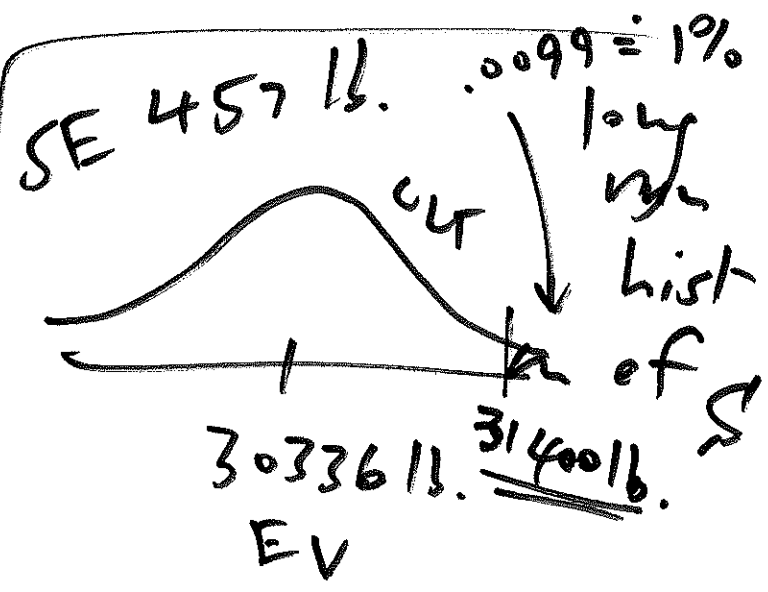 SE 457 lb.
.0099 ≐ 1%
long
run
hist
of
S
CLT
30336 lb.
31400 lb.
EV